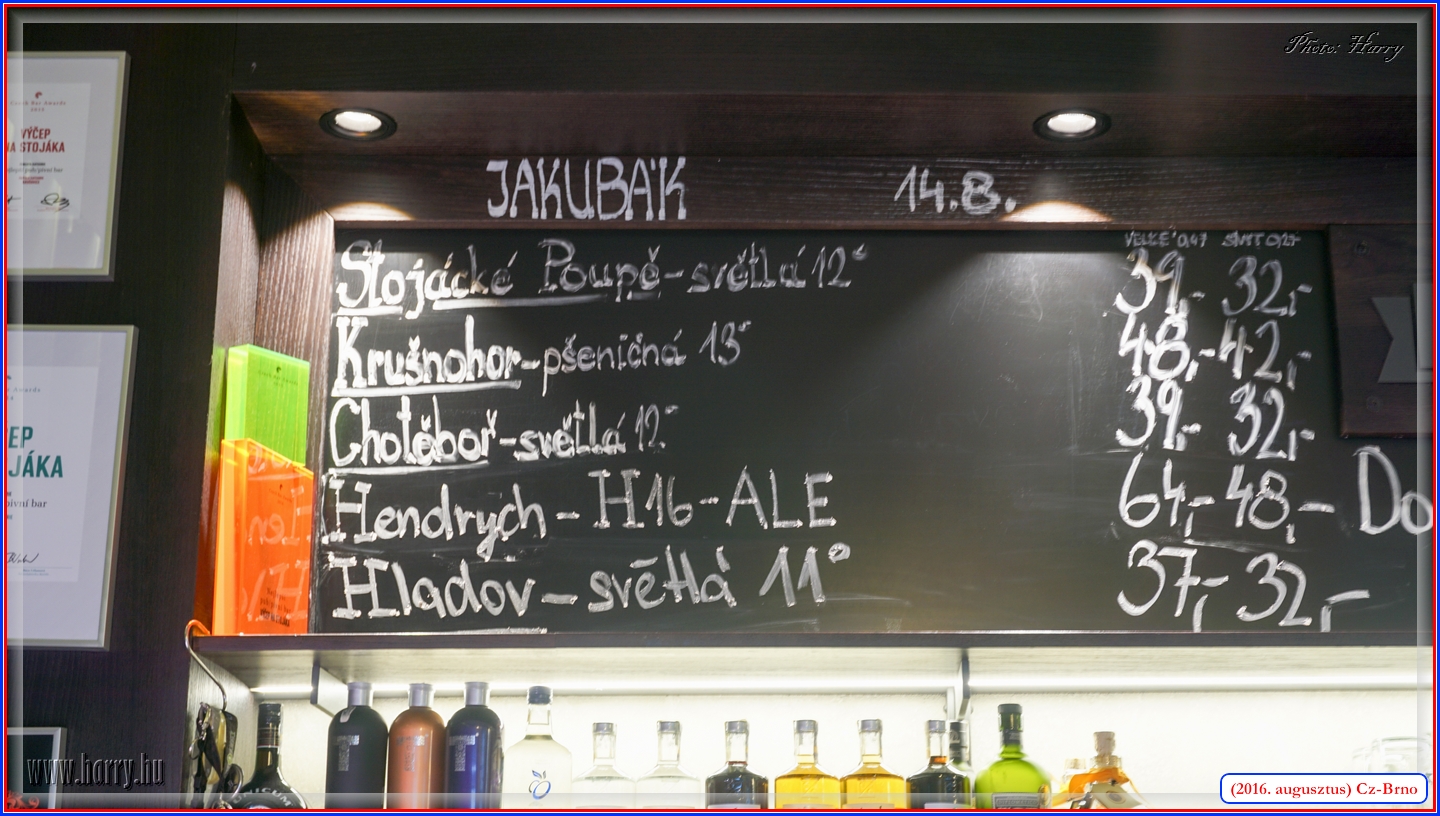 Photo: Harry
VÝČEP
NA STOJÁKA
JAKUBÁK 14.8.
VELKÉ 0,4l
Stojácké Poupě - světlá 12° 39,- 32,-
Krušnohor - pšeničná 13° 48,- 42,-
Chotěboř - světlá 12° 39,- 32,-
Hendrych - H16 - ALE 64,- 48,- Do
Hladov - světlá 11° 37,- 32,-
EP
JÁKA
pivní bar
UNICUM
www.harry.hu
(2016. augusztus) Cz-Brno